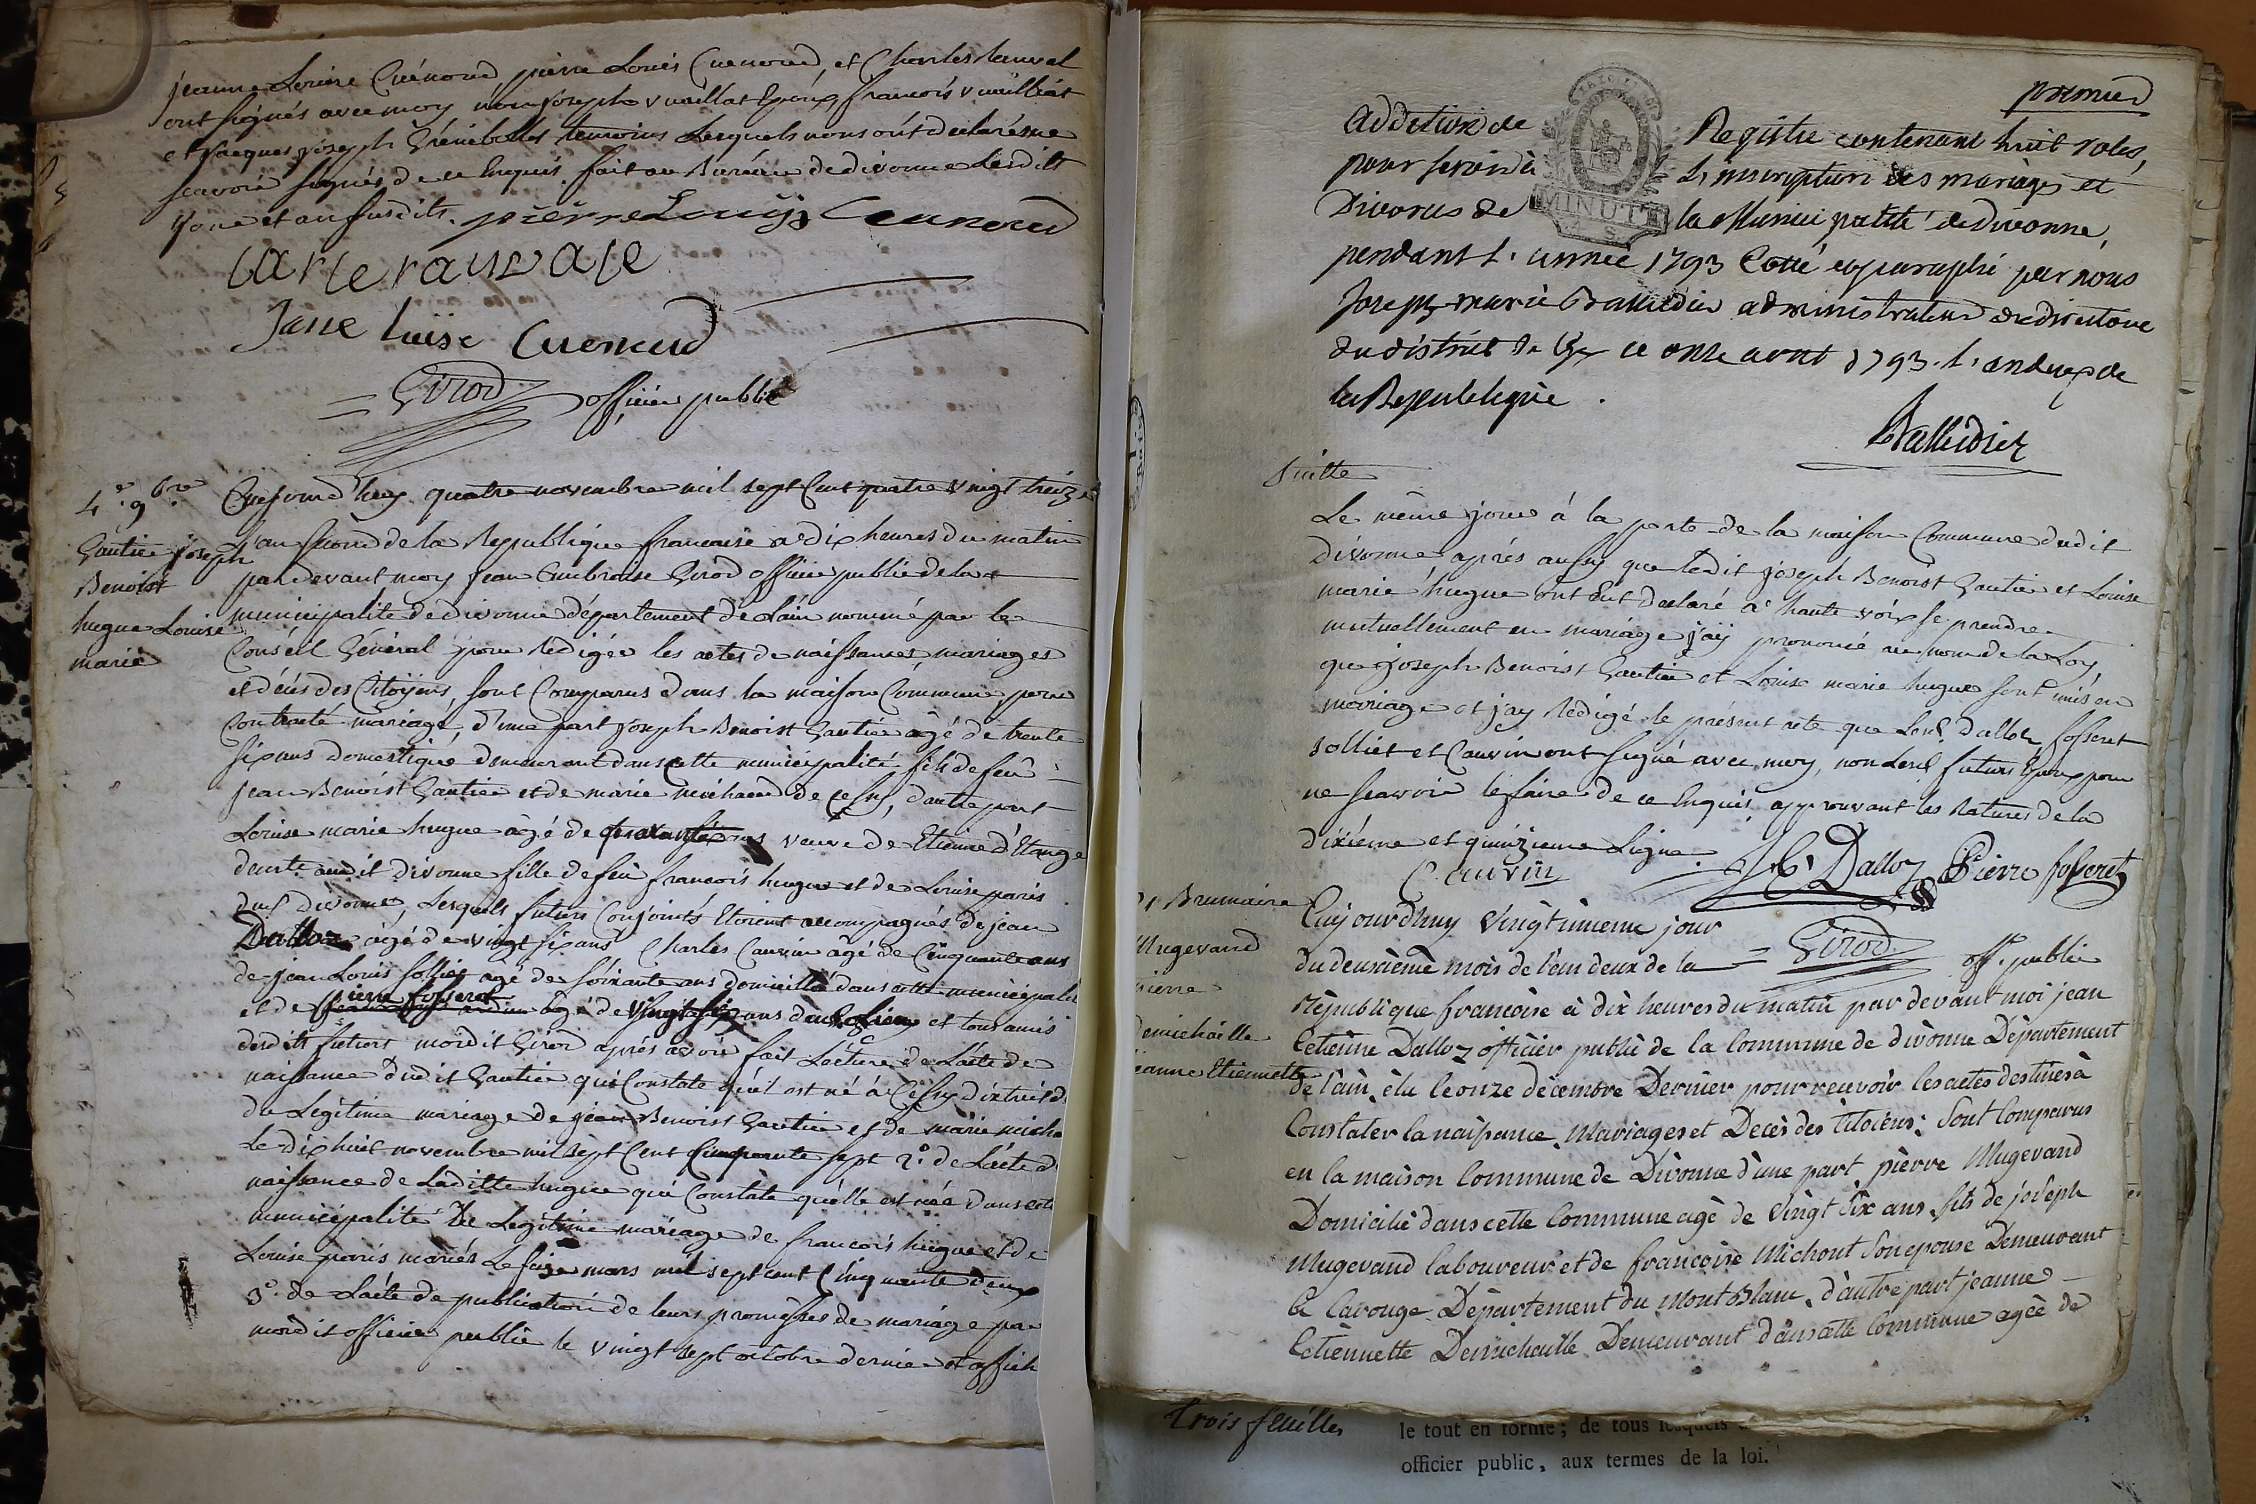 jeanne Louise Cuénoud pierre Louis Cuenoud, et Charles
ont signés avec moy non joseph vuaillat Epoux, françois vuaillat
et jacques joseph temoins Lesquels nous ont declarés ne
scavoir signés de ce Enquis. fait au Bureau de divonne Lesdits
jour et an susdits. pierre Louis Cuenoud
Jane luise Cuenoud
Girod officier public
4e. 9bre.
Gautier joseph
Benoist
hugue Louise
marie
Cejourd'huy quatre novembre mil sept Cent quatre vingt treize
l'an second de la Republique francaise a dix heures du matin
pardevant moy jean Ambroise Girod officier public de la
municipalité de divonne département de lain nommé par le
Conséil Général pour Rédigér les actes de naissances, mariages
et décés des Citoÿens, sont Comparus dans la maison Commune pour
Contracté mariage, d'une part joseph Benoist Gautier âgé de trente
six ans domestique demeurant dans cette municipalité fils de feû
jean Benoist Gautier et de marie michaud de Cessy, d'autre part
Louise marie hugue âgé de quarante ans veuve de Etienne d'Etange
audit divonne fille de feû francois hugue et de Louise paris
dud. divonne, Lesquels futurs Conjoints Etoient accompagnés de jean
Dalloz âgé de vingt six ans Charles Cauvin âgé de Cinquante ans
de jean Louis Solliet agé de soixante ans domicilié dans cette municipalité
et de pierre fosseret âgé de vingt six ans et tous amis
desdits futurs moidit Girod aprés avoir fait Lécture de L'acte de
naissance dudit Gautier qui Constate qu'il est né à Cessy district de
du Legitime mariage de jean Benoist Gautier et de marie micha
Le dix huit novembre mil sept Cent Cinquante sept 2°. de L'acte de
naissance de Laditte hugue qui Constate qu'elle est née dans cette
municipalité Du Legitime mariage de francois hugue et de
Louise paris mariés Le seize mars mil sept cent Cinquante deux
3°. de L'acte de publication de leurs promesses de mariage par
moidit officier public le vingt sept octobre dernier et affich
premier
Addition de Registre contenant huit roles,
pour servir à L'inscription des mariages et
Divorces de la Municipalité de divonne,
pendant l'année 1793 Cotté et paraphé par nous
Joseph marie Balleidier administrateur du directoire
du district de Gex ce onze avril 1793. l'an deux de
la Republique.
Balleidier
Suitte
MINUTE
Le même jour à la porte de la maison Commune dudit
divonne, aprés aussy que ledit joseph Benoist Gautier et Louise
marie hugue ont Eut declaré a haute voix se prendre
mutuellement en mariage j'aÿ prononcé au nom de la Loy,
que joseph Benoist Gautier et Louise marie hugue sont unis en
mariage et j'ay Rédigé le présent acte que Lesd. dalloz fosseret
solliet et Cauvin ont signé avec moy, non Lesd. futurs Epoux pour
ne scavoir le faire de ce Enquis, approuvant les Ratures de la
dixiéme et quinzieme Ligne.
Cauvin J E Dalloz Pierre fosseret
Girod off. public
Brumaire
Mugevand
pierre
Demichaille
jeanne Etiennette
Cujourdhuy vingtunieme jour
du deuxième mois de l'an deux de la
République françoise à dix heures du matin par devant moi jean
Eetienne Dalloz officier public de la Commune de divonne Département
de l'ain, élu le onze décembre Dernier pour recevoir les actes destinés à
Constater la naissance, Mariages et Décès des Citoïens; Sont Comparus
en la maison Commune de Divonne d'une part pierre Mugevand
Domicilié dans cette Commune agé de vingt Six ans, fils de joseph
Mugevand laboureur et de françoise Michont Son epouse Demeurant
à Carouge Département du Mont Blanc, d'autre part jeanne
Eetiennette Demichaille Demeurant dans cette Commune agée de
trois feuilles
le tout en forme; de tous lesquels
officier public, aux termes de la loi.